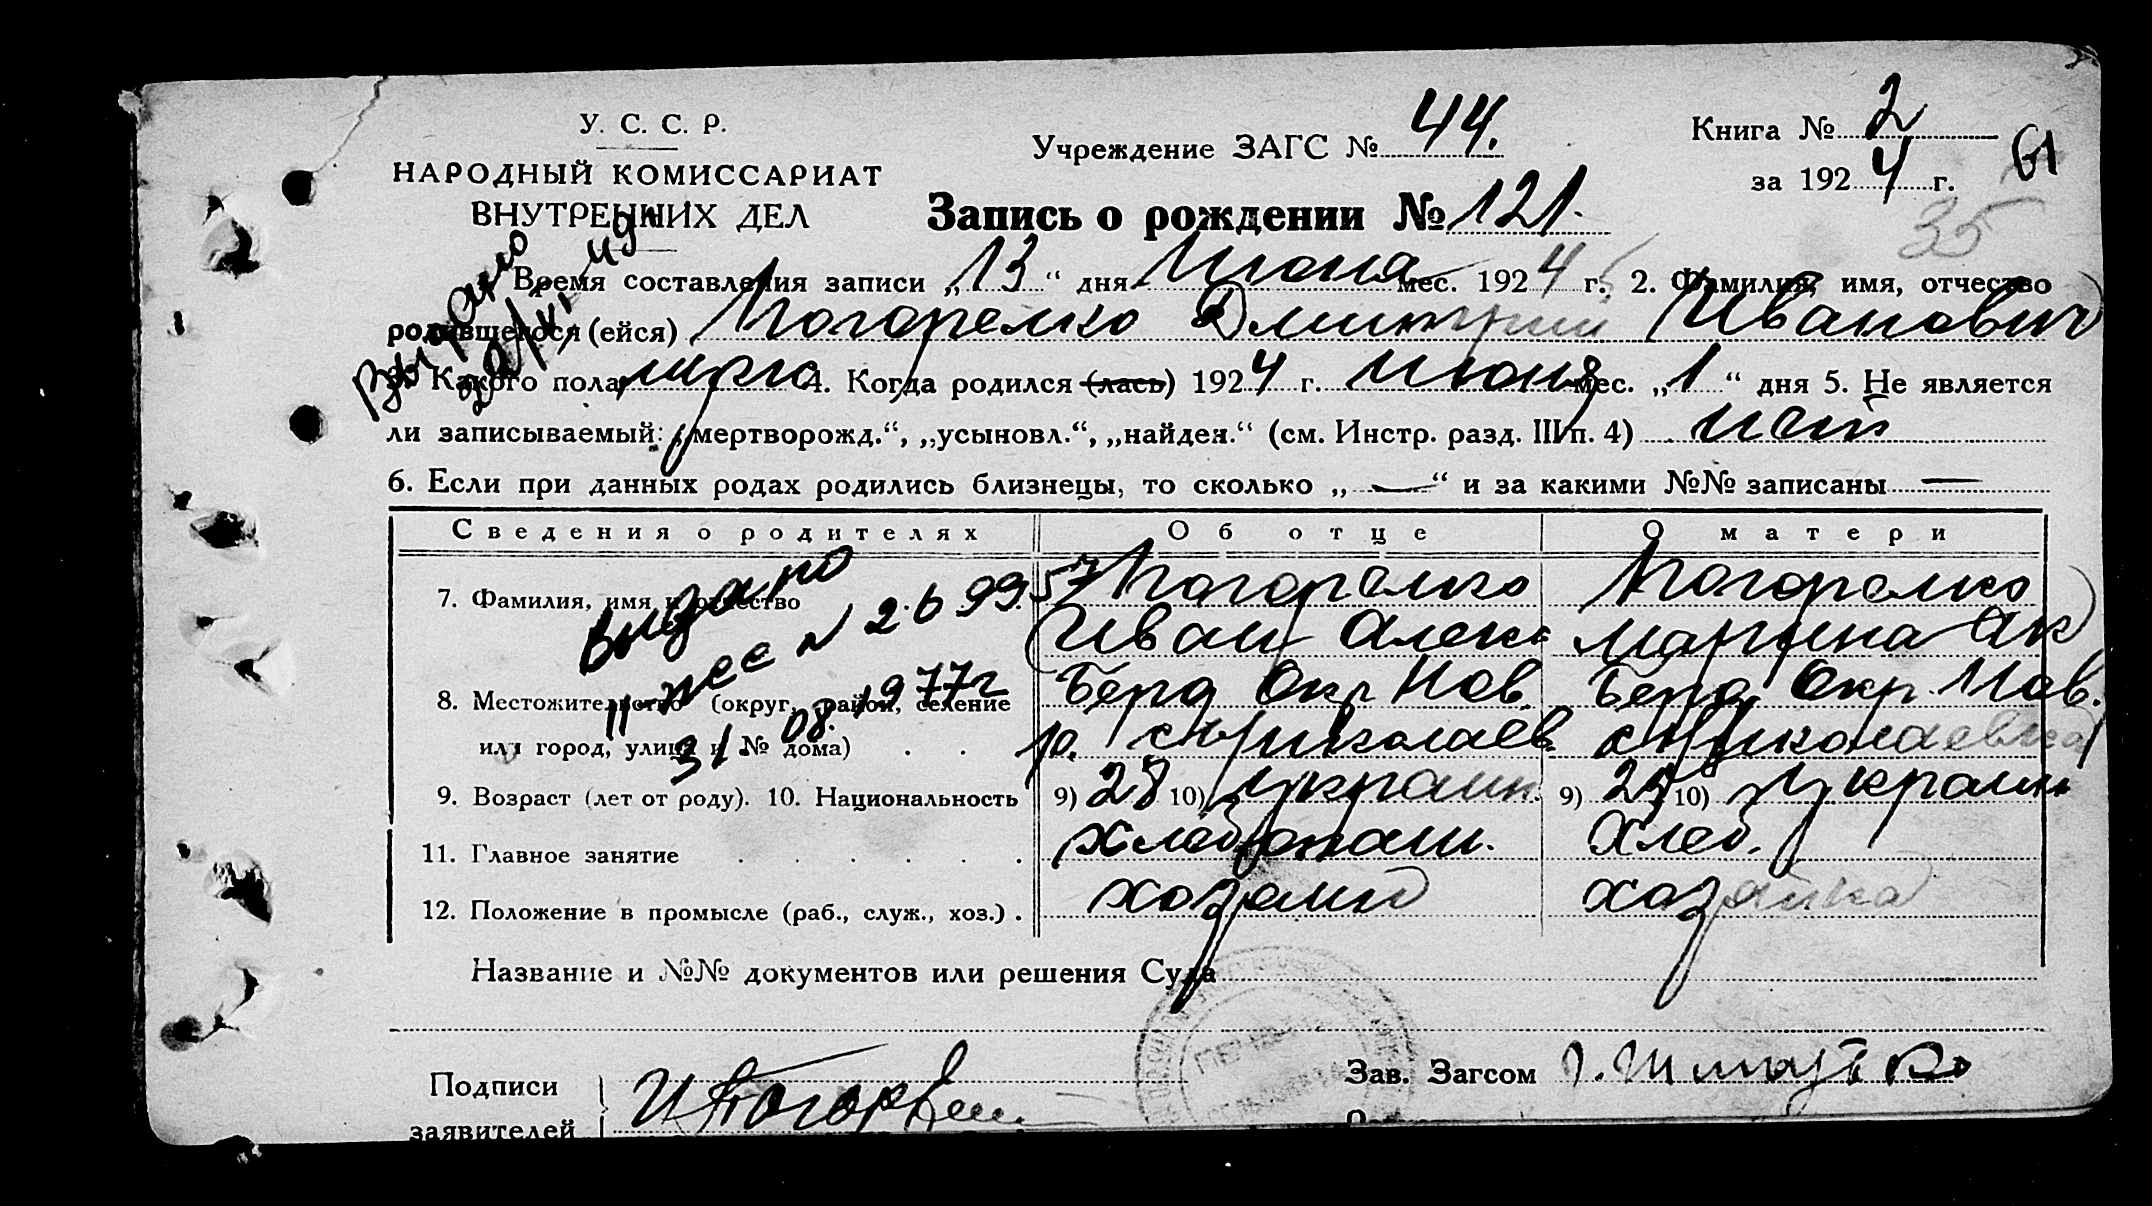 У. С. С. Р.
НАРОДНЫЙ КОМИССАРИАТ
ВНУТРЕННИХ ДЕЛ
Учреждение ЗАГС № 44.
Книга № 2
за 1924 г.
61
35
Запись о рождении № 121.
Время составления записи „13“ дня Июня мес. 1924 г. 2. Фамилия, имя, отчество
родившегося (ейся) Погорелко Дмитрий Иванович
Какого пола 4. Когда родился (лась) 1924 г. Июня мес. „1“ дня 5. Не является
ли записываемый: „мертворожд.“, „усыновл.“, „найден.“ (см. Инстр. разд. III п. 4) нет
6. Если при данных родах родились близнецы, то сколько „—“ и за какими №№ записаны —
Сведения о родителях Об отце О матери
7. Фамилия, имя и отчество Погорелко Погорелко
Иван Алекс Марина Ак
8. Местожительство (округ, район, селение Берд Окр Нов. Берд Окр. Нов.
или город, улица и № дома) р. с. Николаев с. Николаевка
9. Возраст (лет от роду). 10. Национальность 9) 28 10) украин. 9) 10) украин
11. Главное занятие хлебопаш. Хлеб.
12. Положение в промысле (раб., служ., хоз.) хозяин хозяйка
Выдано
II № 269957
31 08. 1977г
Название и №№ документов или решения Суда
Подписи
заявителей
Зав. Загсом